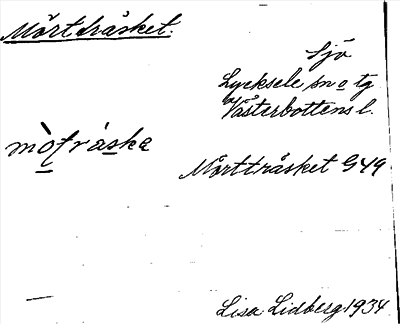 Mörtträsket.
Sjö
Lycksele sn o tg
Västerbottens l.
mò̱tràska
Mörtträsket G49
Lisa Lidberg 1934